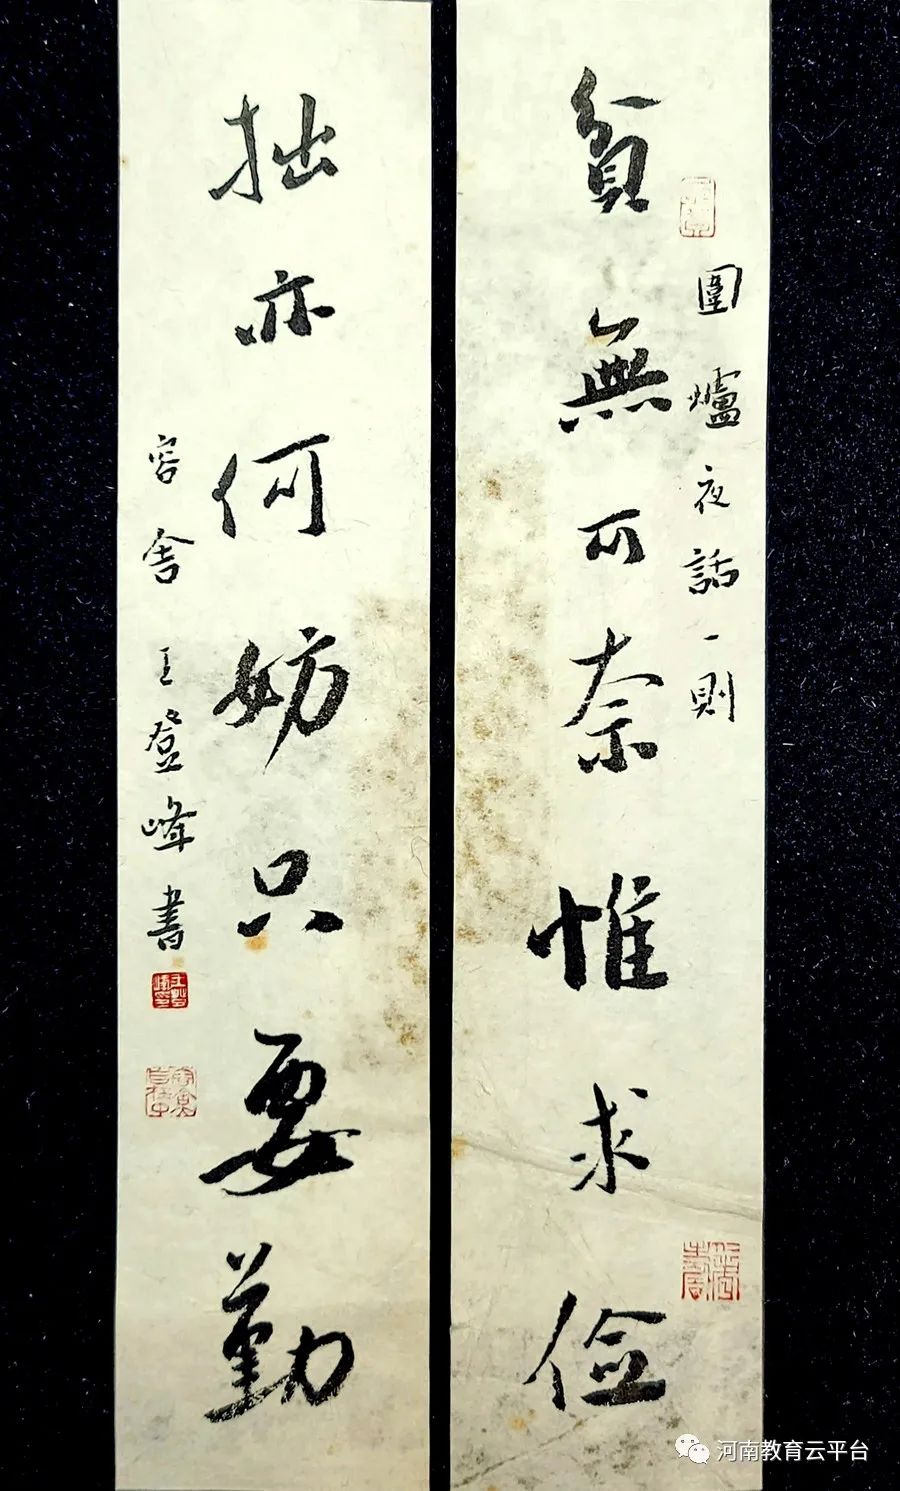 圍爐夜話一則
貧無可奈惟求儉
拙亦何妨只要勤
容舍王登峰書
河南教育云平台